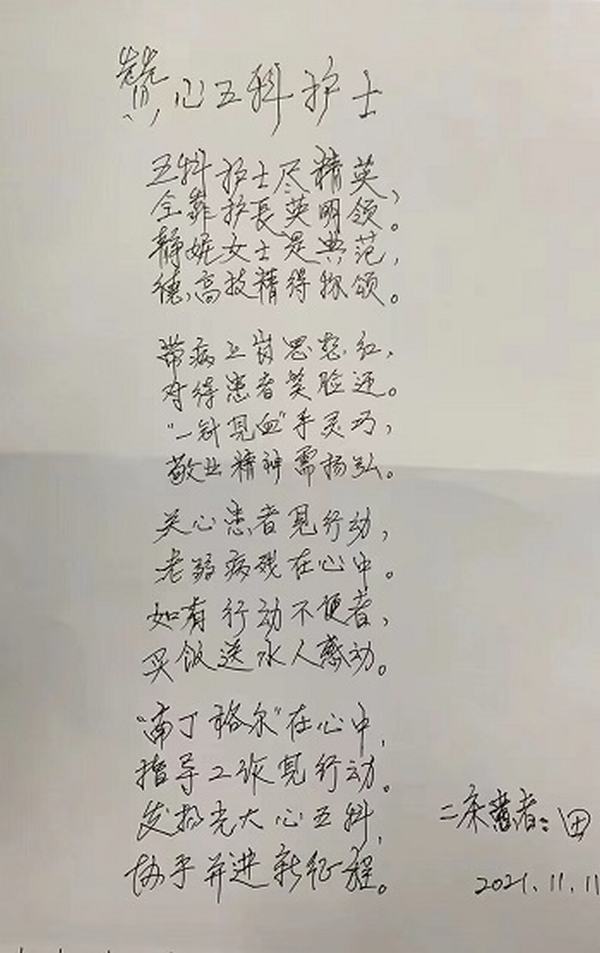 赞心五科护士
五科护士尽精英，
全靠护長英明领。
静妮女士是典范，
德高技精得称颂。
带病上岗思想红，
对待患者笑脸迎。
“一针见血”手灵巧，
敬业精神需扬弘。
关心患者见行动，
老弱病残在心中。
如有行动不便者，
买饭送水人感动。
“南丁格尔”在心中，
指导工作见行动。
发扬光大心五科，
协手并进新征程。
二床患者：田
2021.11.11